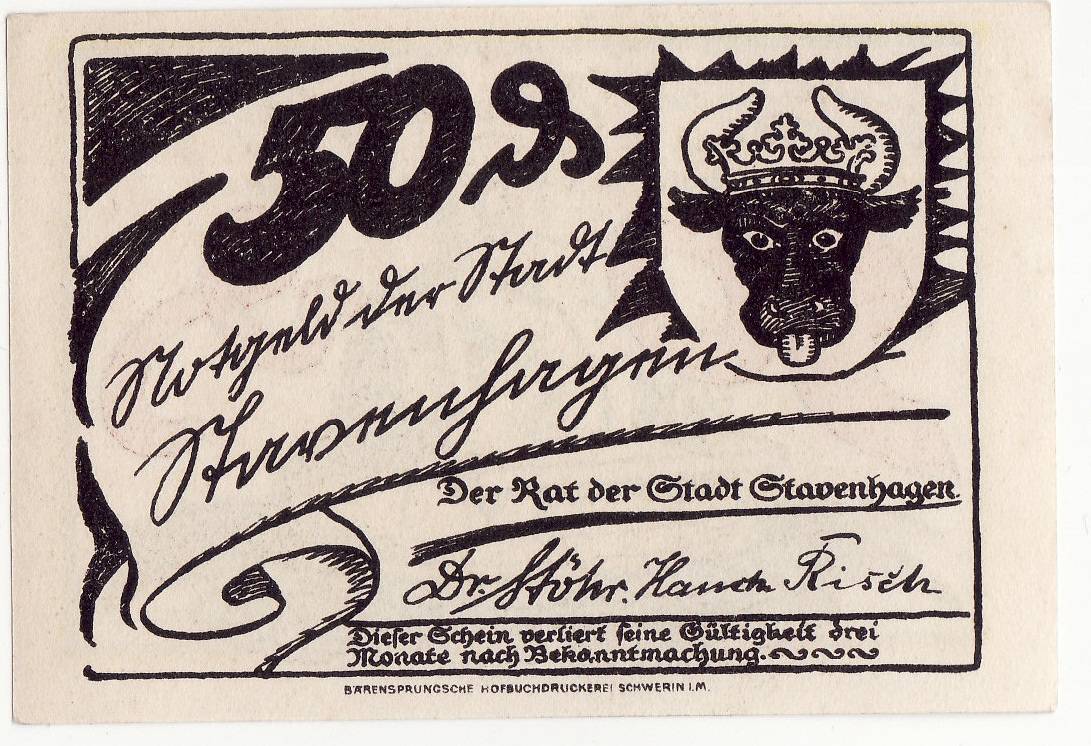 50 ₰
Notgeld der Stadt
Stavenhagen
Der Rat der Stadt Stavenhagen.
Dr. Stöhr. Risch
Dieser Schein verliert seine Gültigkeit drei
Monate nach Bekanntmachung.
BÄRENSPRUNGSCHE HOFBUCHDRUCKEREI SCHWERIN I.M.